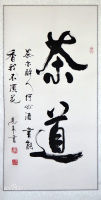 茶道
茶亦醉人何必酒 書能
香我不須花